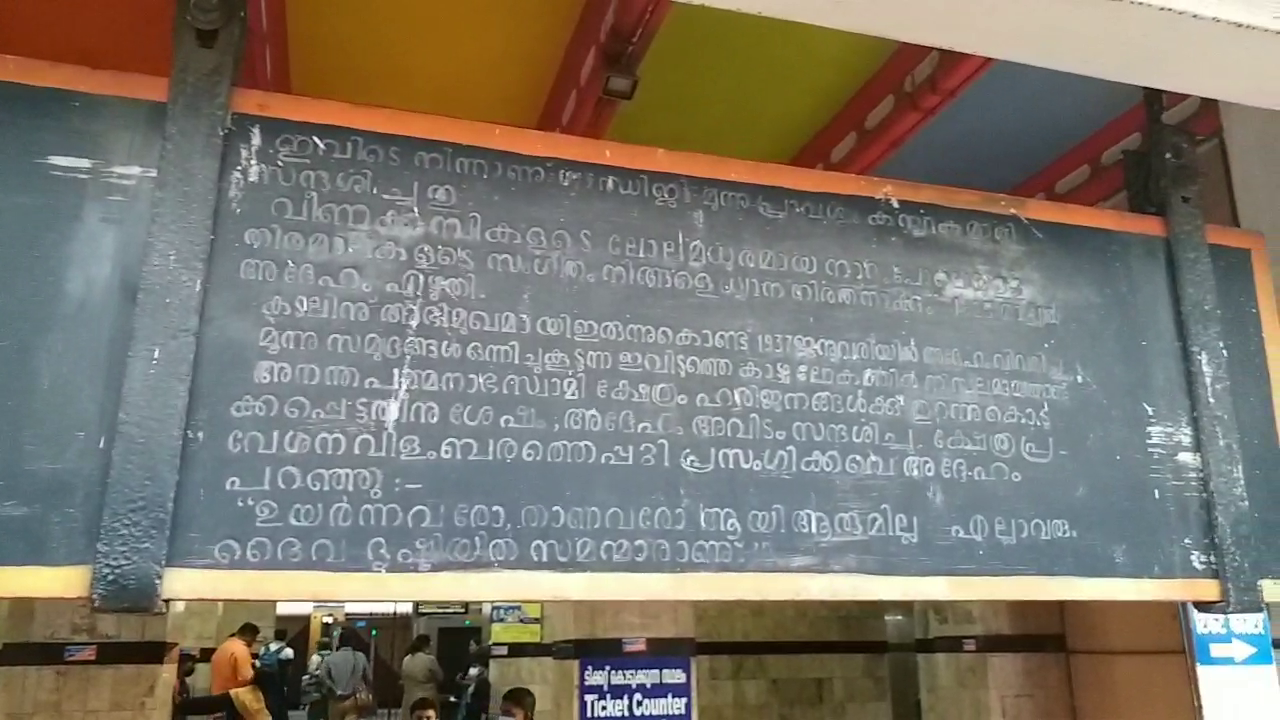 ഇവിടെ നിന്നാണു ഗാന്ധിജി മൂന്നു പ്രാവശ്യം കന്യാകുമാരി
സന്ദർശിച്ചത്
വീണക്കമ്പികളുടെ ലോലമധുരമായ നാദം പോലെയുള്ള
തിരമാലകളുടെ സംഗീതം നിങ്ങളെ ധ്യാന നിരതനാക്കും
അദ്ദേഹം എഴുതി.
കടലിനു അഭിമുഖമായിഇരുന്നുകൊണ്ട് 1937ജനുവരിയിൽ അദ്ദേഹം വിവരിച്ചു
മൂന്നു സമുദ്രങ്ങൾ ഒന്നിച്ചുകൂടുന്ന ഇവിടുത്തെ കാഴ്ച ലോകത്തിൽ
അനന്തപത്മനാഭസ്വാമി ക്ഷേത്രം ഹരിജനങ്ങൾക്കു തുറന്നുകൊടു
ക്കപ്പെട്ടതിനു ശേഷം, അദ്ദേഹം അവിടം സന്ദർശിച്ചു. ക്ഷേത്രപ്ര-
വേശനവിളംബരത്തെപ്പറ്റി പ്രസംഗിക്കവെ അദ്ദേഹം
പറഞ്ഞു :-
"ഉയർന്നവരോ, താണവരോ ആയി ആരുമില്ല എല്ലാവരും
ദൈവ ദൃഷ്ടിയിൽ സമന്മാരാണു."
ടിക്കറ്റ് കൊടുക്കുന്ന സ്ഥലം
Ticket Counter